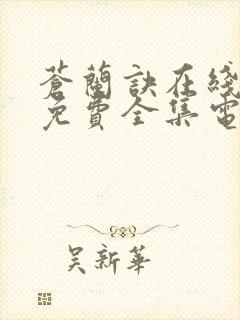 蒼蘭訣在綫
免費全集電
吴新華